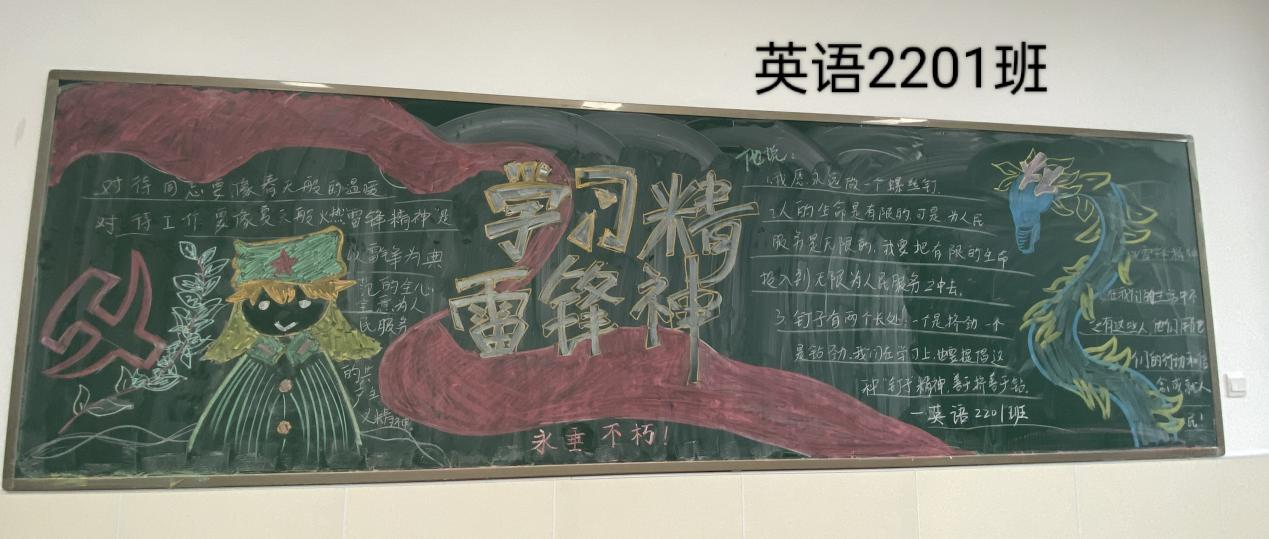 英语2201班
对待同志要像春天般的温暖
对待工作要像夏天般火热
雷锋精神"是
以雷锋为典
范的全心
全意为人
民服务
的共
产主
义精神
学习
雷锋
精神
永垂不朽！
他说：
1.我愿永远做一个螺丝钉.
2.人的生命是有限的可是为人民
服务是无限的,我要把有限的生命
投入到无限为人民服务之中去.
3.钉子有两个长处:一个是挤劲一个
是钻劲.我们在学习上也要提倡这
种"钉子"精神,善于挤善于钻.
—英语2201班
在我们的生活中不
乏有这些人,他们用
们的行动和信
念成就人
民！